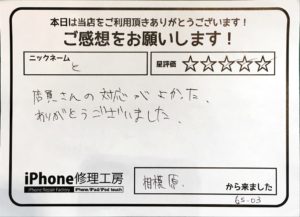 本日は当店をご利用頂きありがとうございます！
ご感想をお願いします！
ニックネーム
と
星評価 ☆☆☆☆☆
店員さんの対応がよかった、
ありがとうございました
iPhone修理工房
iPhone Repair Factory
iPhone/iPad/iPod touch
相模原 から来ました
65-03